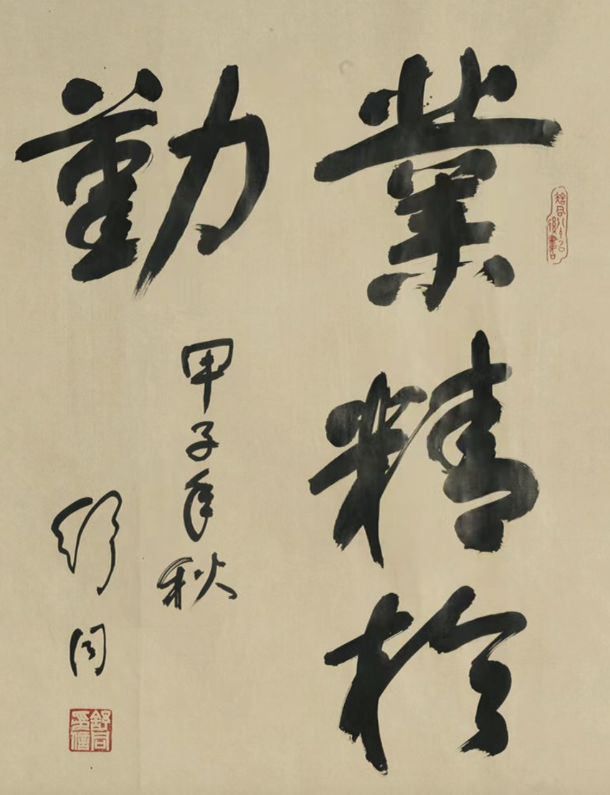 業精於
勤
甲子年秋
舒同